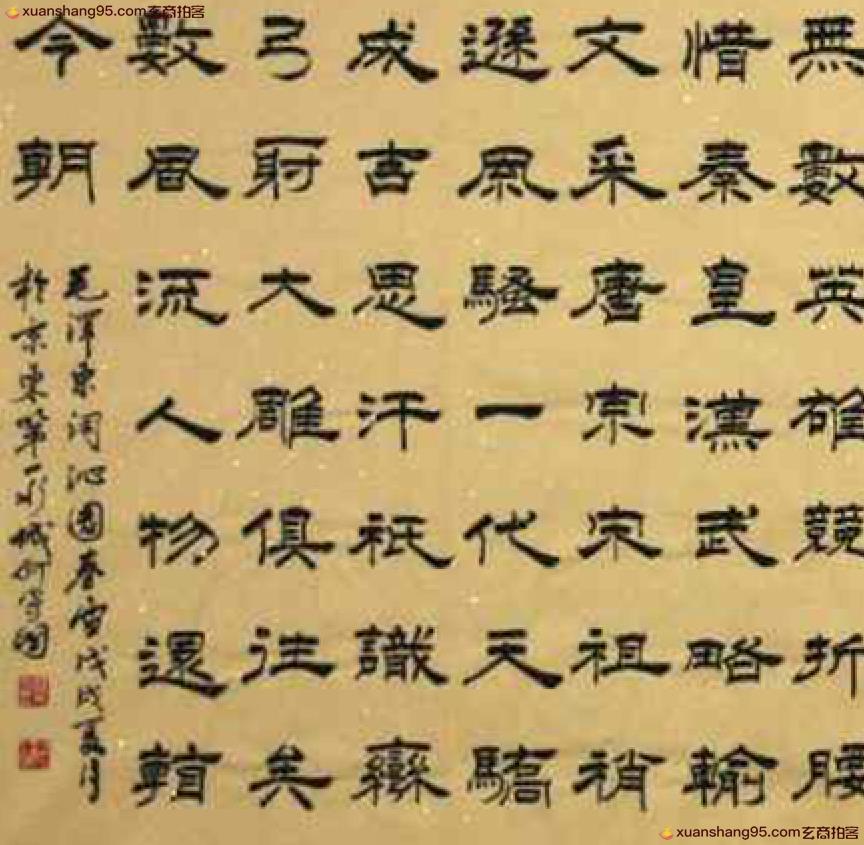 xuanshang95.com玄商拍客
無數英雄競折腰
惜秦皇漢武略輸
文采唐宗宋祖稍
遜風騷一代天驕
成吉思汗祇識彎
弓射大雕俱往矣
數風流人物還看
今朝
毛澤東词沁園春雪戊戌夏月
於京東第一城
xuanshang95.com玄商拍客